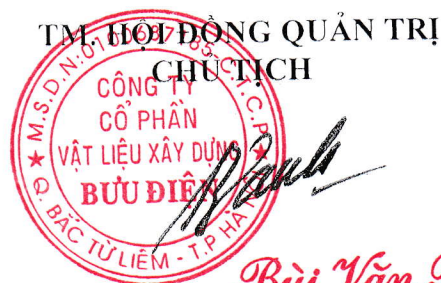 TM. HỘI ĐỒNG QUẢN TRỊ
CHỦ TỊCH
CÔNG TY
CỔ PHẦN
VẬT LIỆU XÂY DỰNG
BƯU ĐIỆN
Q. BẮC TỪ LIÊM - T.P HÀ
Bùi Văn